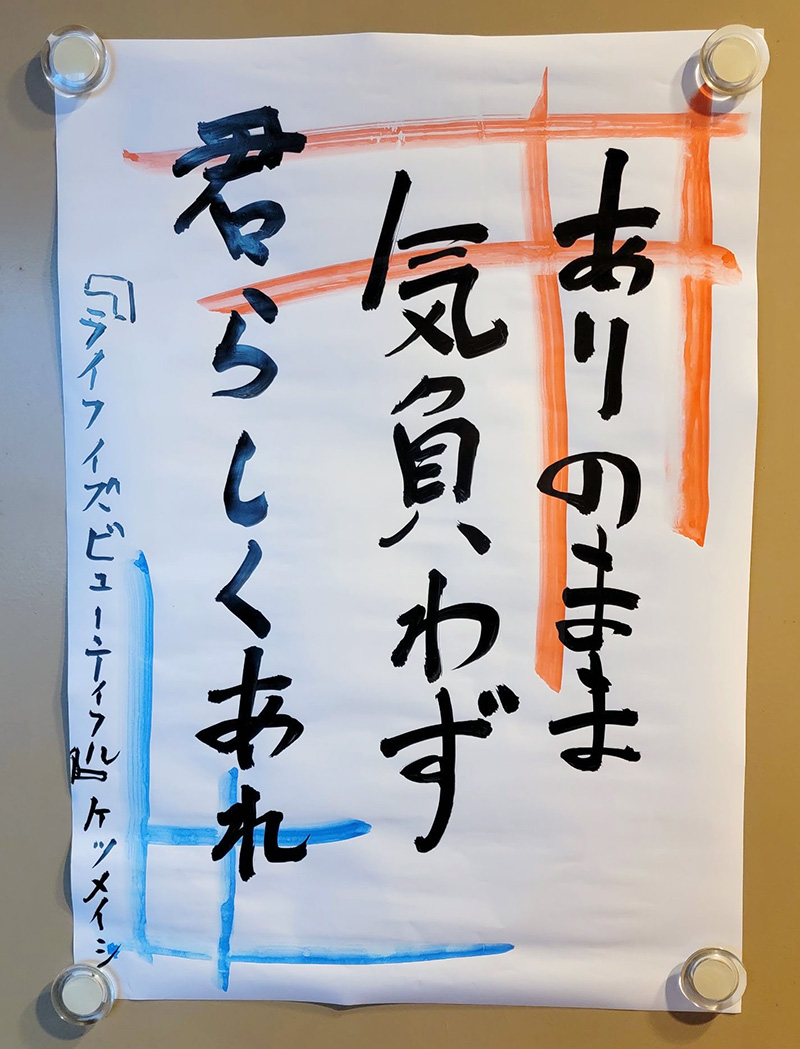 ありのまま
気負わず
君らしくあれ
『ライフイズビューティフル』ケツメイシ